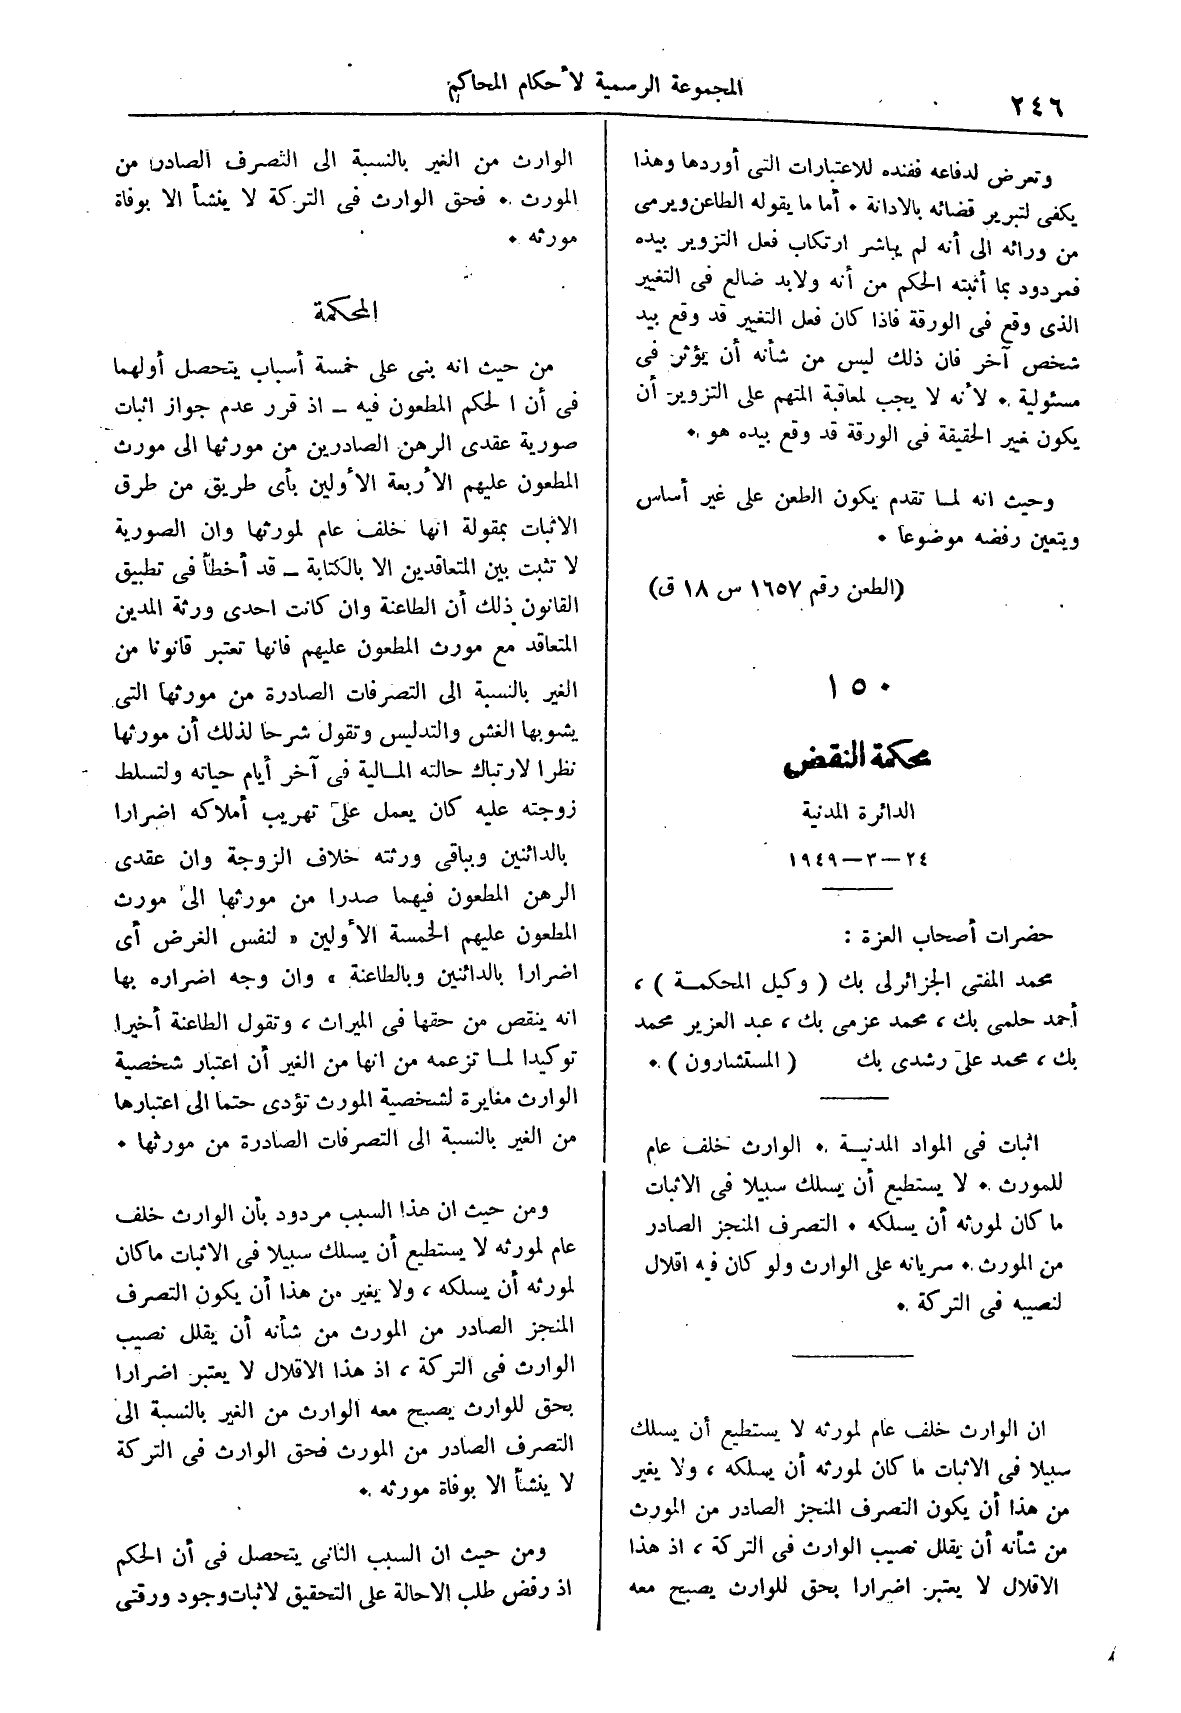 ٢٤٦
المجموعة الرسمية لأحكام المحاكم
وتعرض لدفاعه ففنده للاعتبارات التى أوردها وهذا
يكفى لتبرير قضائه بالادانة . أما ما يقوله الطاعن ويرمى
من ورائه الى أنه لم يباشر ارتكاب فعل التزوير بيده
فمردود بما أثبته الحكم من أنه ولابد ضالع فى التغيير
الذى وقع فى الورقة فاذا كان فعل التغيير قد وقع بيد
شخص آخر فان ذلك ليس من شأنه أن يؤثر فى
مسئولية . لأنه لا يجب لمعاقبة المتهم على التزوير أن
يكون غيير الحقيقة فى الورقة قد وقع بيده هو .
وحيث انه لما تقدم يكون الطعن على غير أساس
ويتعين رفضه موضوعا .
(الطعن رقم ١٦٥٧ س ١٨ ق)
١٥٠
محكمة النقض
الدائرة المدنية
٢٤-٣-١٩٤٩
حضرات أصحاب العزة :
محمد المفتى الجزائرلى بك ( وكيل المحكمة ) ،
أحمد حلمى بك ، محمد عزمى بك ، عبد العزيز محمد
بك ، محمد على رشدى بك ( المستشارون ) .
اثبات فى المواد المدنية . الوارث خلف عام
للمورث . لا يستطيع أن يسلك سبيلا فى الاثبات
ما كان لمورثه أن يسلكه . التصرف المنجز الصادر
من المورث . سريانه على الوارث ولو كان فيه اقلال
لنصيبه فى التركة .
ان الوارث خلف عام لمورثه لا يستطيع أن يسلك
سبيلا فى الاثبات ما كان لمورثه أن يسلكه ، ولا يغير
من هذا أن يكون التصرف المنجز الصادر من المورث
من شأنه أن يقلل نصيب الوارث فى التركة ، اذ هذا
الاقلال لا يعتبر اضرارا بحق للوارث يصبح معه
الوارث من الغير بالنسبة الى التصرف الصادر من
المورث . فحق الوارث فى التركة لا ينشأ الا بوفاة
مورثه .
المحكمة
من حيث انه بنى على خمسة أسباب يتحصل أولهما
فى أن الحكم المطعون فيه – اذ قرر عدم جواز اثبات
صورية عقدى الرهن الصادرين من مورثها الى مورث
المطعون عليهم الأربعة الأولين بأى طريق من طرق
الاثبات بمقولة انها خلف عام لمورثها وان الصورية
لا تثبت بين المتعاقدين الا بالكتابة – قد أخطأ فى تطبيق
القانون ذلك أن الطاعنة وان كانت احدى ورثة المدين
المتعاقد مع مورث المطعون عليهم فانها تعتبر قانونا من
الغير بالنسبة الى التصرفات الصادرة من مورثها التى
يشوبها الغش والتدليس وتقول شرحا لذلك أن مورثها
نظرا لارتباك حالته المالية فى آخر أيام حياته ولتسلط
زوجته عليه كان يعمل على تهريب أملاكه اضرارا
بالدائنين وبباقى ورثته خلاف الزوجة وان عقدى
الرهن المطعون فيهما صدرا من مورثها الى مورث
المطعون عليهم الخمسة الأولين « لنفس الغرض أى
اضرارا بالدائنين وبالطاعنة » وان وجه اضراره بها
انه ينقص من حقها فى الميراث ، وتقول الطاعنة أخيرا
توكيدا لما تزعمه من انها من الغير أن اعتبار شخصية
الوارث مغايرة لشخصية المورث تؤدى حتما الى اعتبارها
من الغير بالنسبة الى التصرفات الصادرة من مورثها .
ومن حيث ان هذا السبب مردود بأن الوارث خلف
عام لمورثه لا يستطيع أن يسلك سبيلا فى الاثبات ماكان
لمورثه أن يسلكه ، ولا يغير من هذا أن يكون التصرف
المنجز الصادر من المورث من شأنه أن يقلل نصيب
الوارث فى التركة ، اذ هذا الاقلال لا يعتبر اضرارا
بحق للوارث يصبح معه الوارث من الغير بالنسبة الى
التصرف الصادر من المورث فحق الوارث فى التركة
لا ينشأ الا بوفاة مورثه .
ومن حيث ان السبب الثانى يتحصل فى أن الحكم
اذ رفض طلب الاحالة على التحقيق لاثبات وجود ورقتى